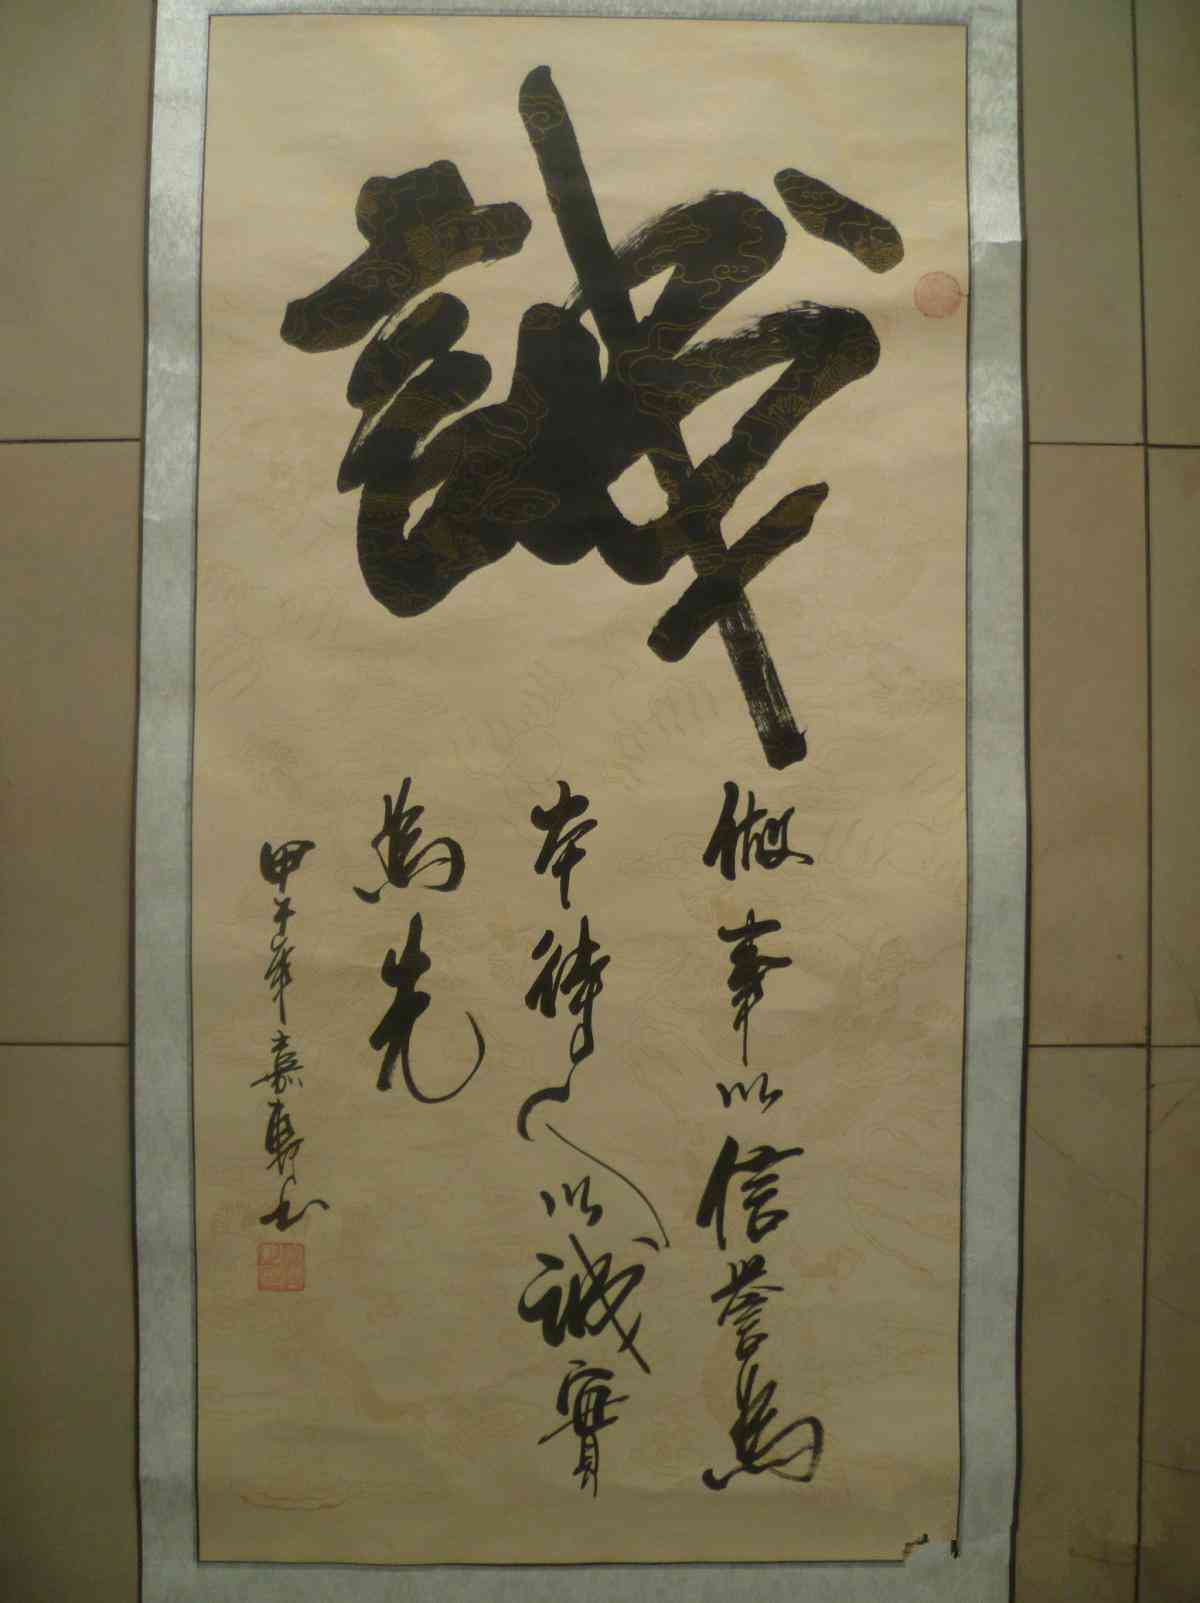 誠
做事以信誉為
本待人以誠實
為先
甲午年嘉勳书